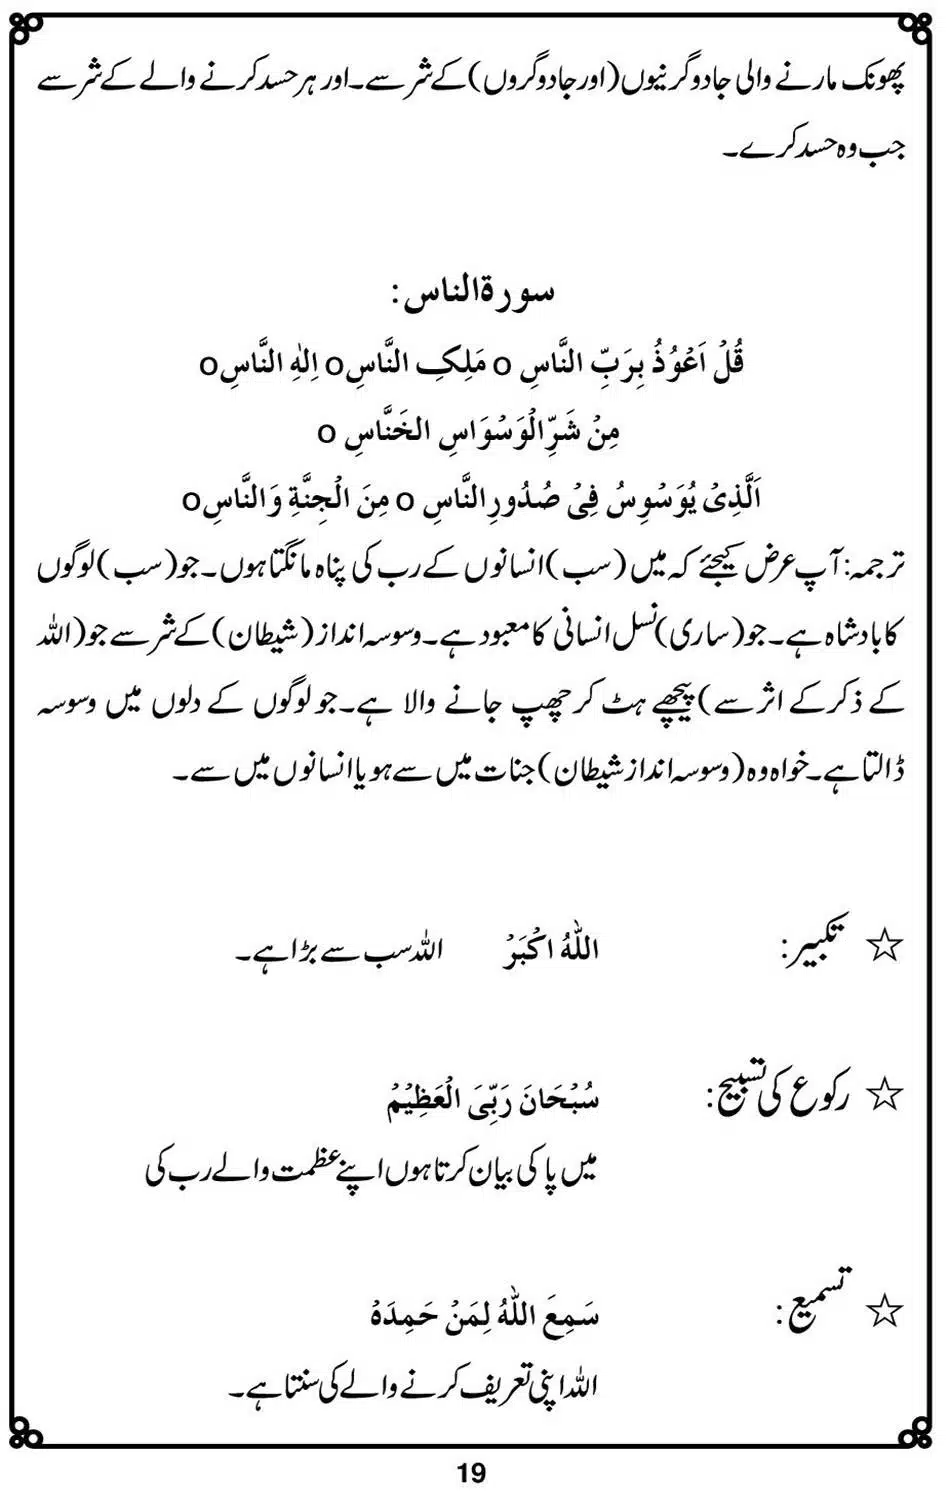 پھونک مارنے والی جادوگرنیوں (اور جادوگروں) کے شر سے۔ اور ہر حسد کرنے والے کے شر سے
جب وہ حسد کرے۔
سورۃ الناس:
قُلْ اَعُوْذُ بِرَبِّ النَّاسِ o مَلِكِ النَّاسِ o اِلٰهِ النَّاسِ o
مِنْ شَرِّ الْوَسْوَاسِ الخَنَّاسِ o
اَلَّذِىْ يُوَسْوِسُ فِىْ صُدُورِ النَّاسِ o مِنَ الْجِنَّةِ وَالنَّاسِ o
ترجمہ: آپ عرض کیجئے کہ میں (سب) انسانوں کے رب کی پناہ مانگتا ہوں۔ جو (سب) لوگوں
کا بادشاہ ہے۔ جو (ساری) نسل انسانی کا معبود ہے۔ وسوسہ انداز (شیطان) کے شر سے جو (اللہ
کے ذکر کے اثر سے) پیچھے ہٹ کر چھپ جانے والا ہے۔ جو لوگوں کے دلوں میں وسوسہ
ڈالتا ہے۔ خواہ وہ (وسوسہ انداز شیطان) جنات میں سے ہو یا انسانوں میں سے۔
☆ تکبیر: اللهُ اكْبَرْ اللہ سب سے بڑا ہے۔
☆ رکوع کی تسبیح: سُبْحَانَ رَبِّىَ الْعَظِيْمْ
میں پاکی بیان کرتا ہوں اپنے عظمت والے رب کی
☆ تسمیع: سَمِعَ اللهُ لِمَنْ حَمِدَهْ
اللہ اپنی تعریف کرنے والے کی سنتا ہے۔
19